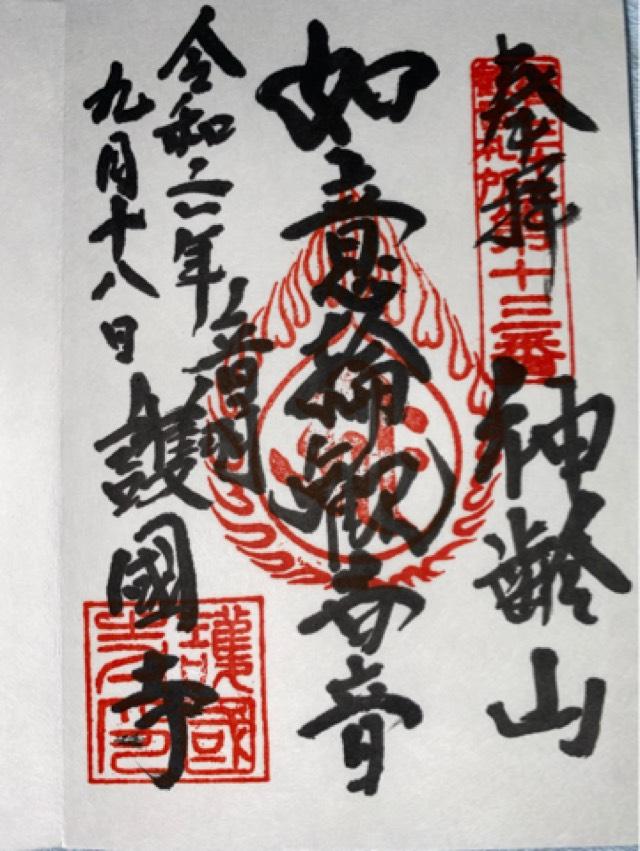 奉拝
札所第十三番
神齢山
如意輪観世音
音羽
護國寺
護國
令和二年
九月十八日